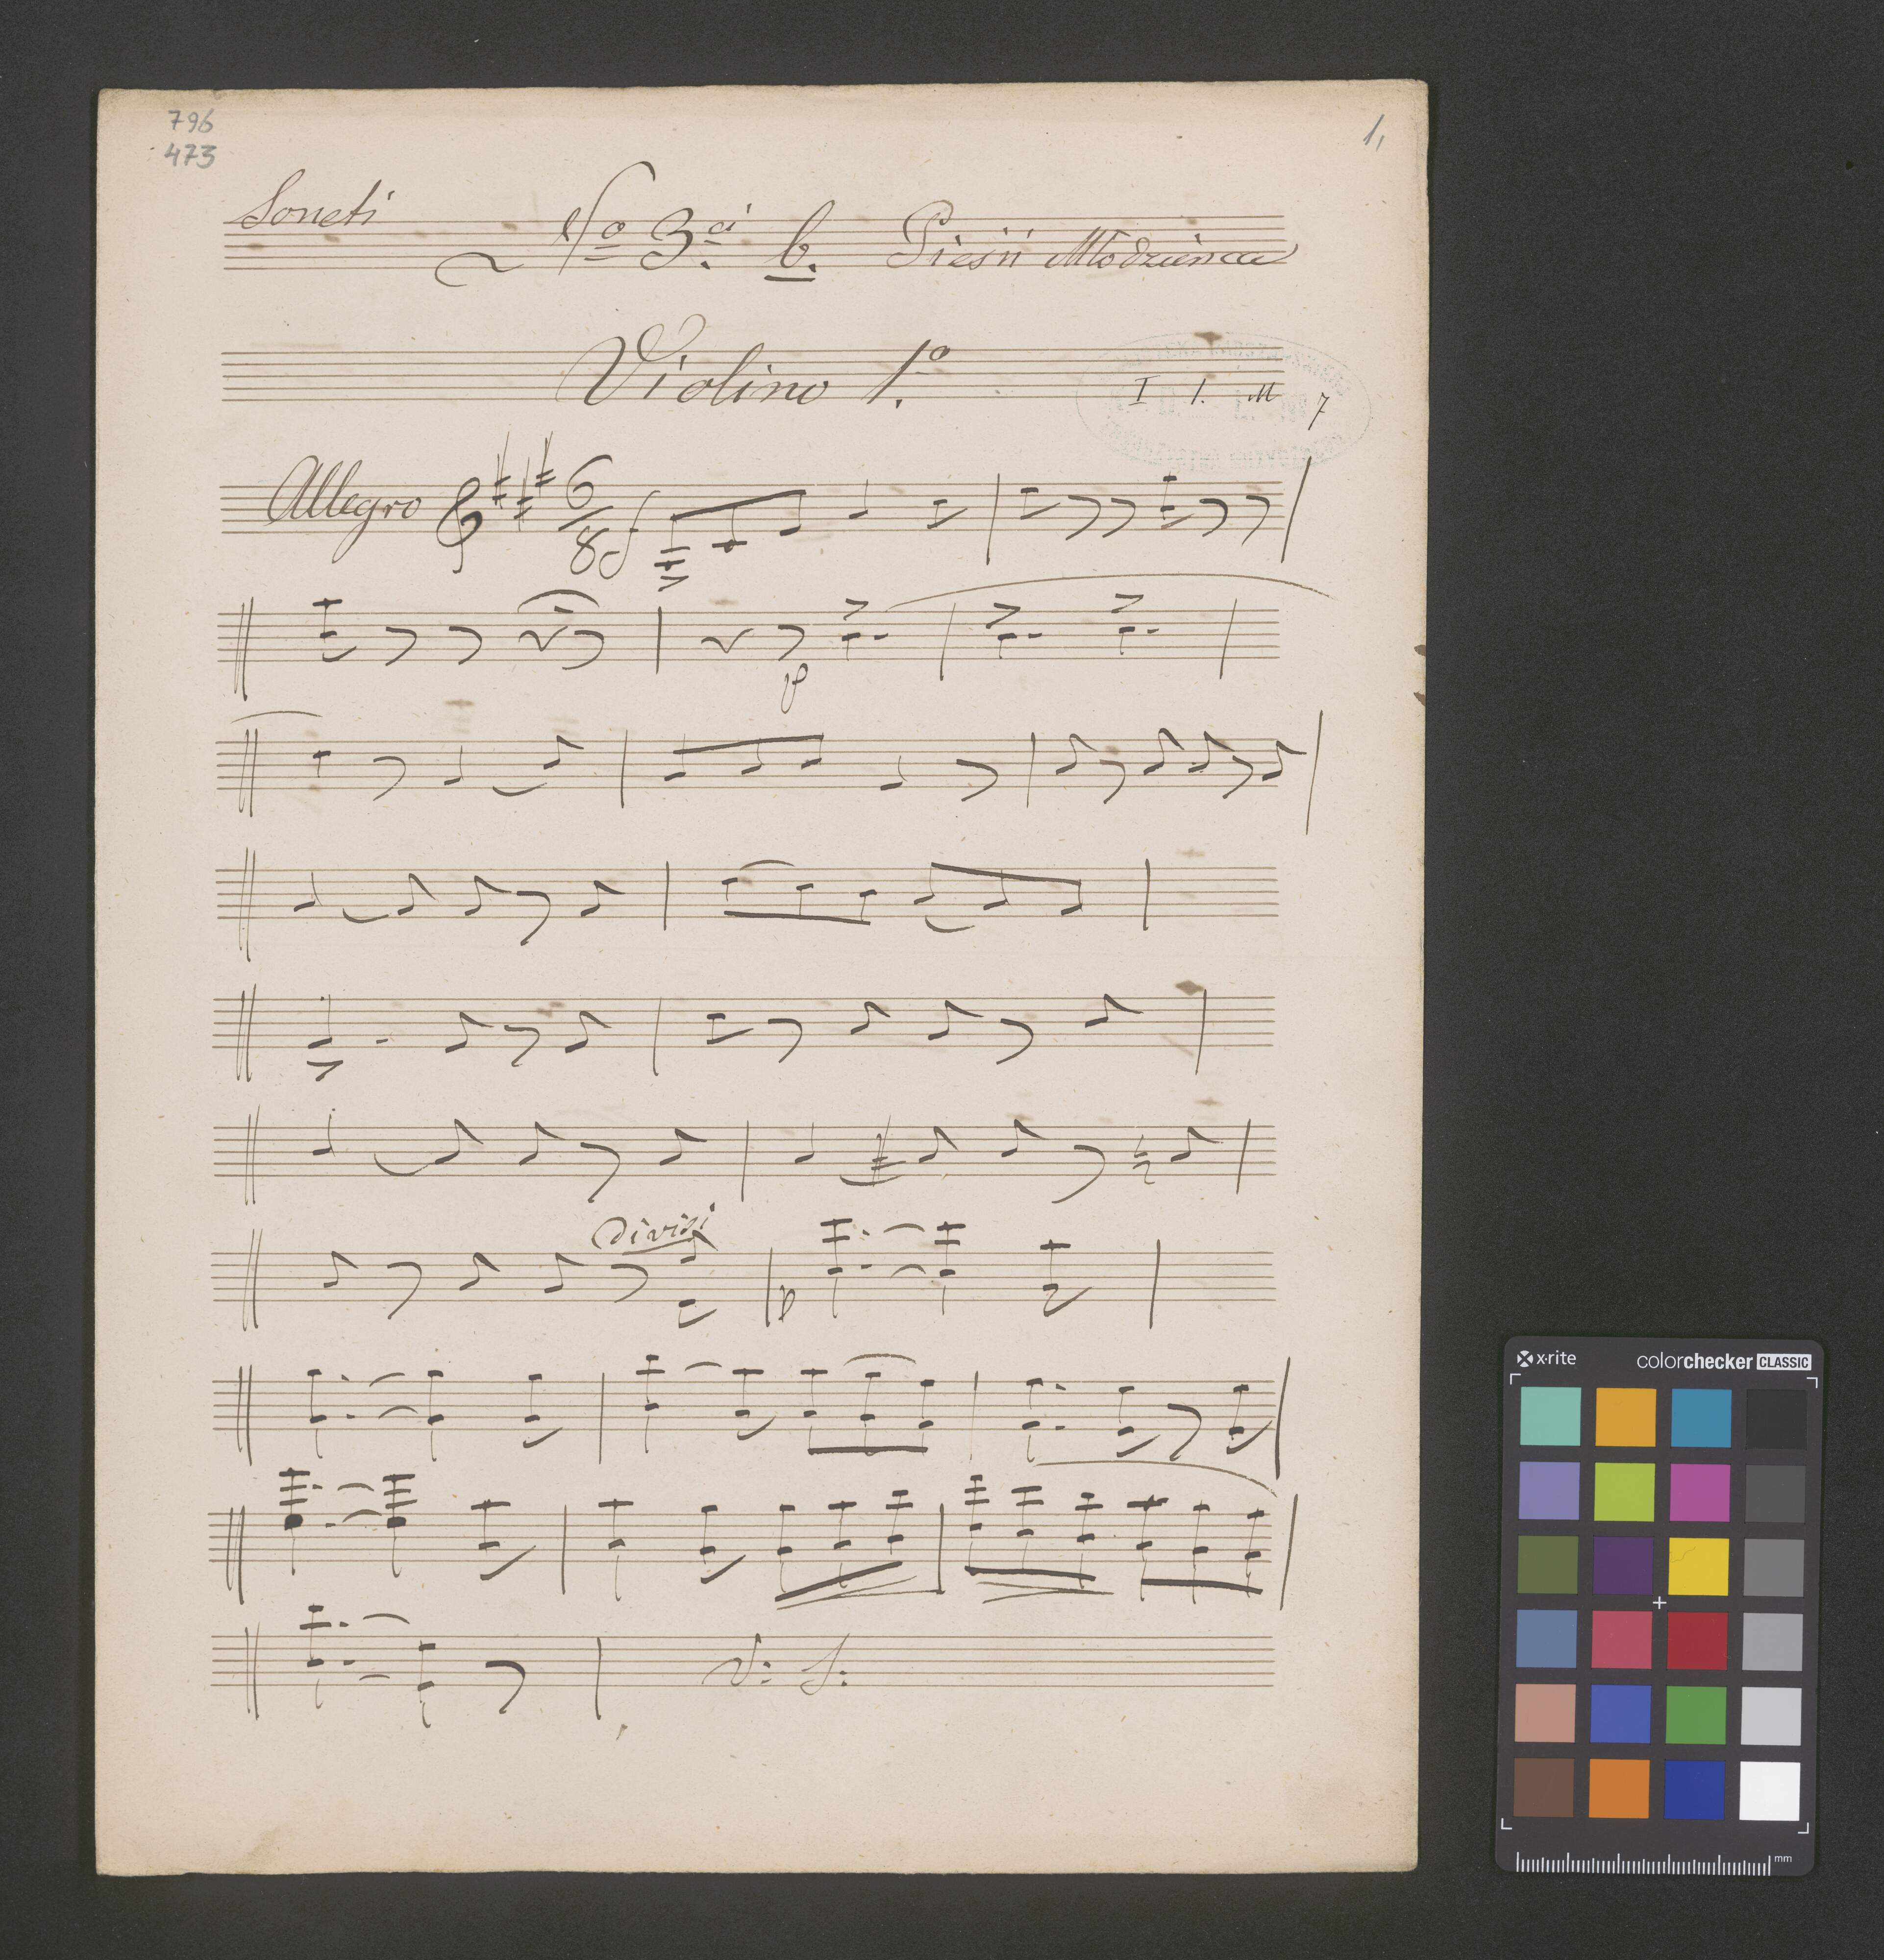 796
473
1,
Soneti
No 3ci b. Pieśń Młodzieńca
Violino 1o.
I 1. M 7
Allegro 6/8 f
p
Divisi
p
V: S:
x·rite colorchecker CLASSIC
mm